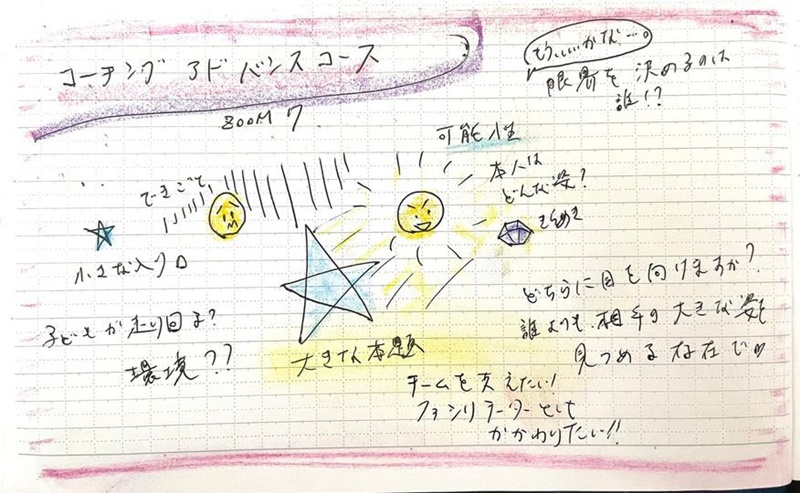 コーチング アドバンスコース
ZOOM 7
もういいかな…。
限界を決めるのは
誰!?
可能性
本人は
どんな姿?
きらめき
できごと
小さな入り口
子どもが走り回る?
環境??
大きな本題
どちらに目を向けますか?
誰よりも、相手の大きな姿を
見つめる存在で
チームを支えたい!
ファシリテーターとして
かかわりたい!!